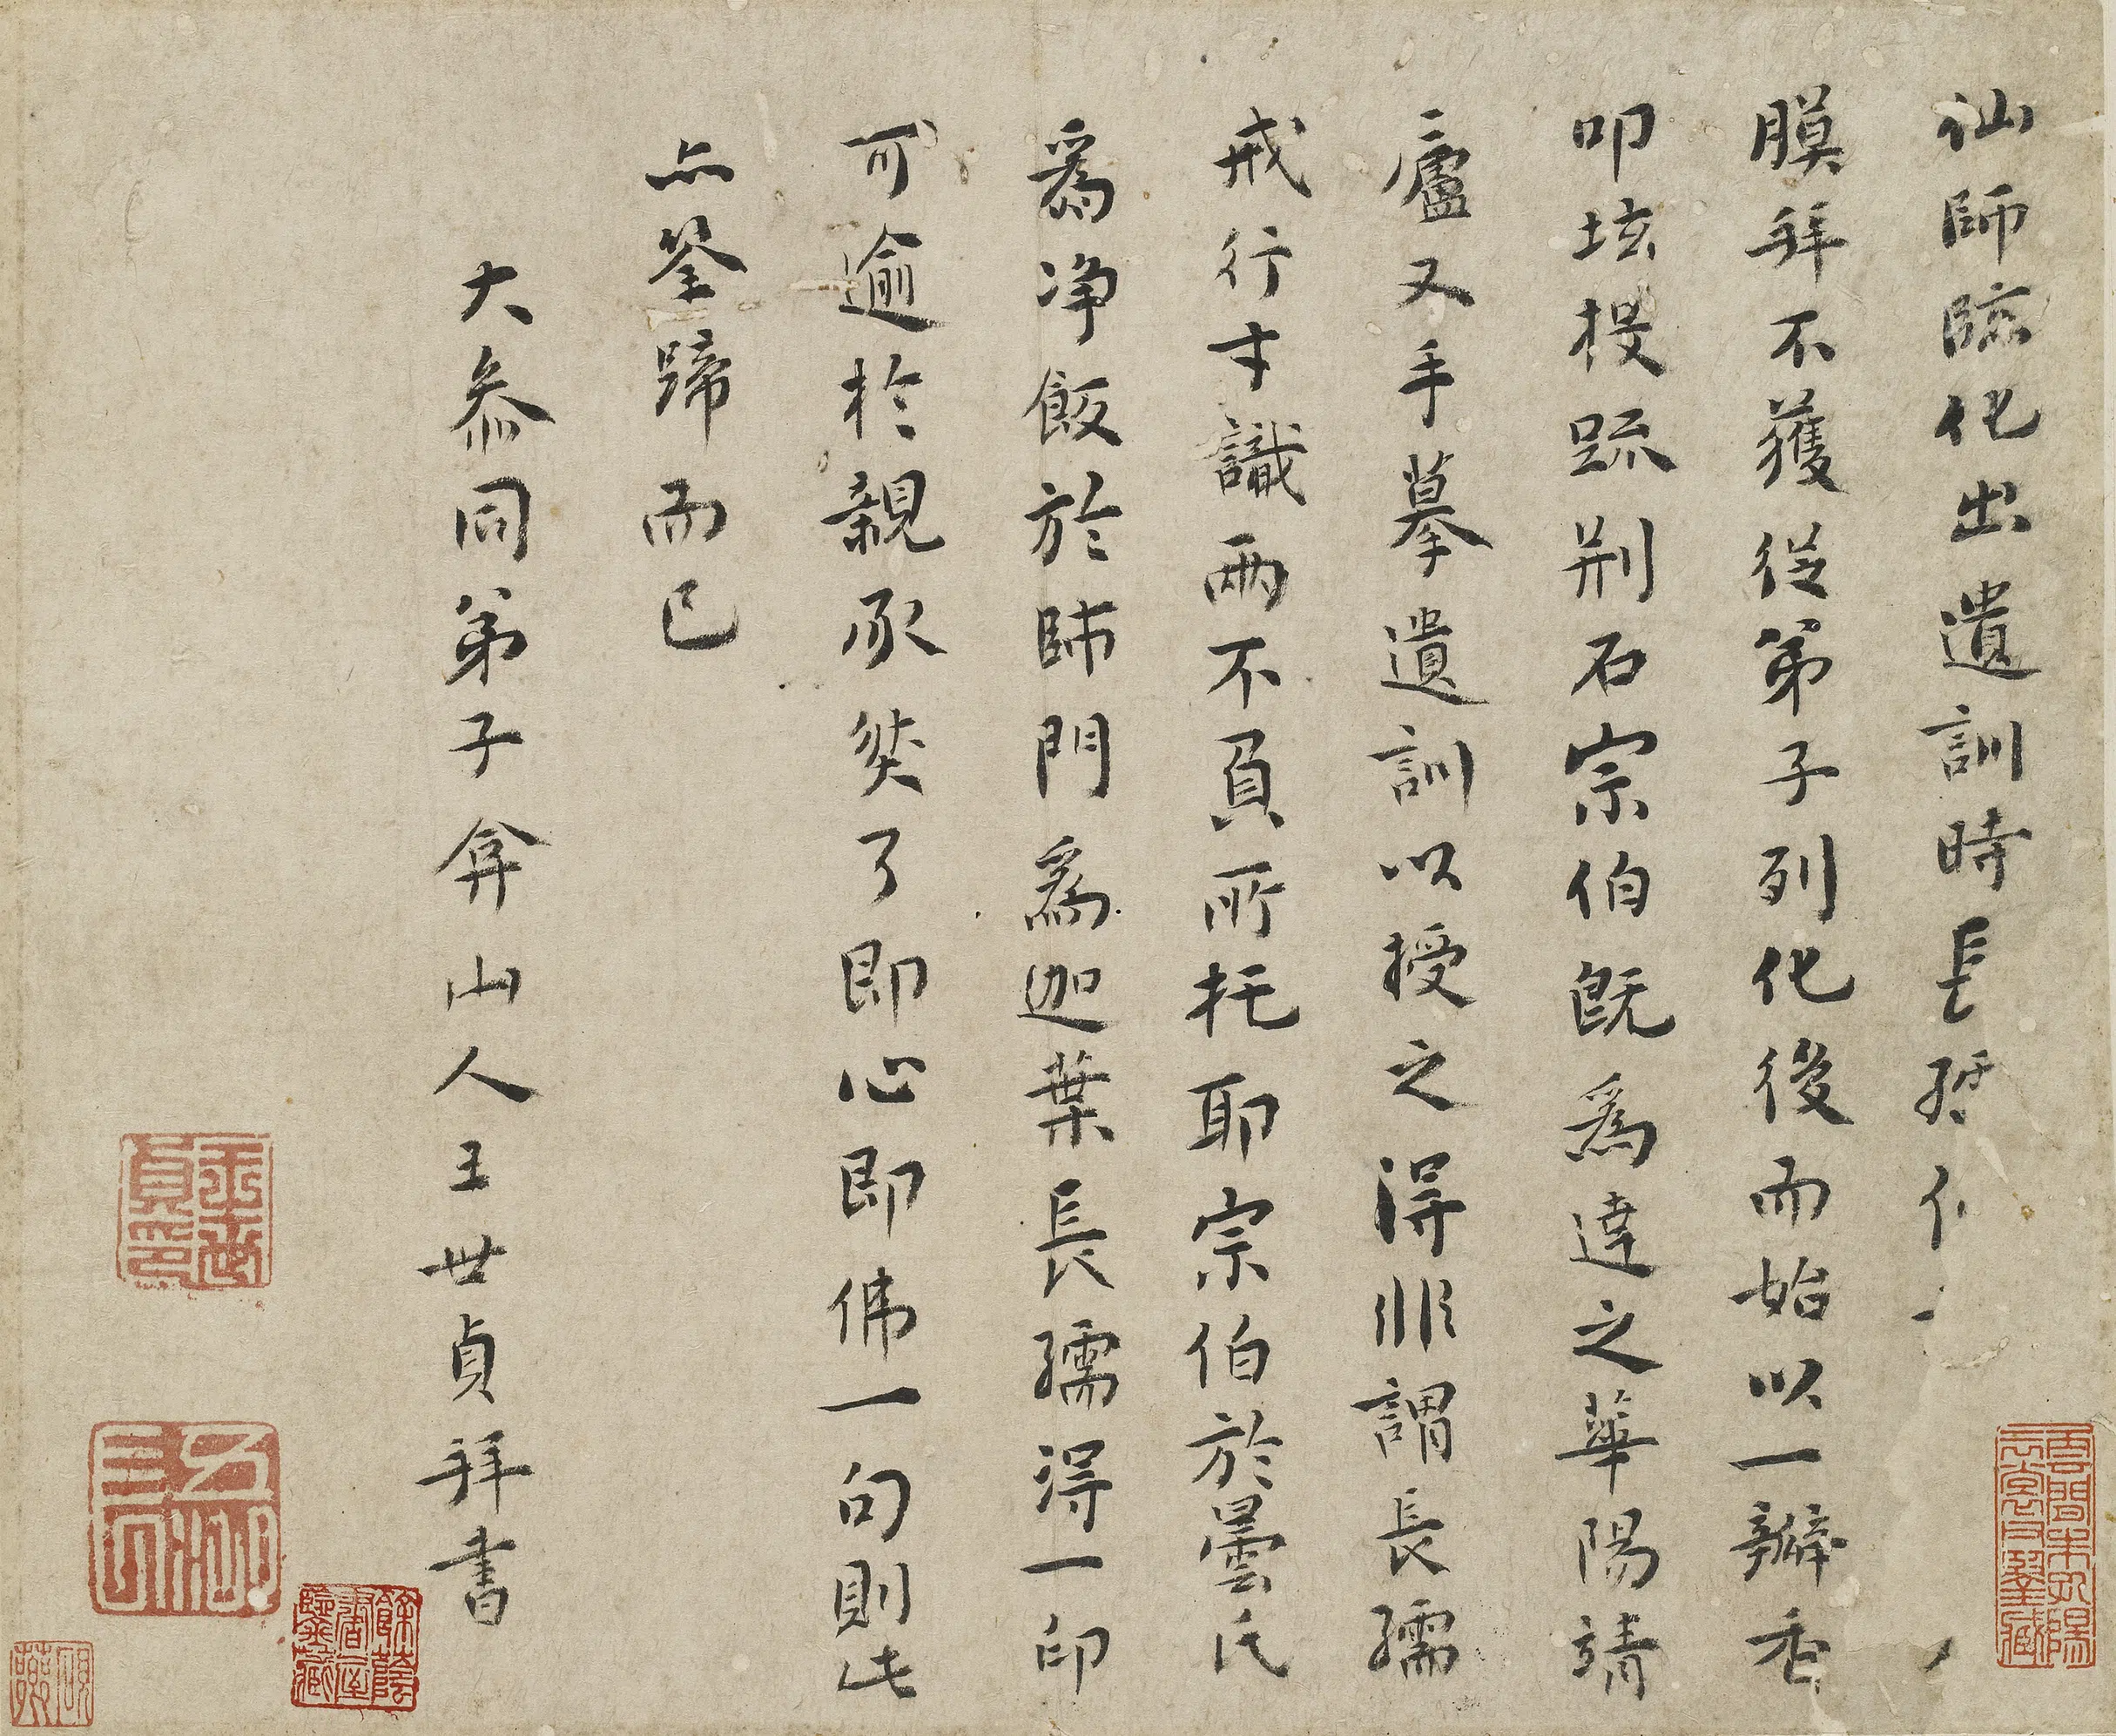 仙師臨化出遺訓時長孺
膜拜不獲從弟子列化後而始以一瓣香
叩龕投疏荊石宗伯既為達之華陽靖
廬又手摹遺訓以授之得非謂長孺
戒行才識兩不負所托耶宗伯於曇氏
為淨飯於師門為迦葉長孺得一印
可逾於親承矣了即心即佛一句則此
亦筌蹄而已
大參同弟子弇山人王世貞拜書
王世貞印